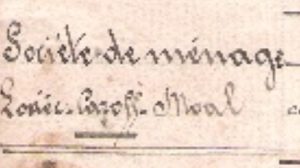 Société de ménage
Louëc-Caroff-Moal